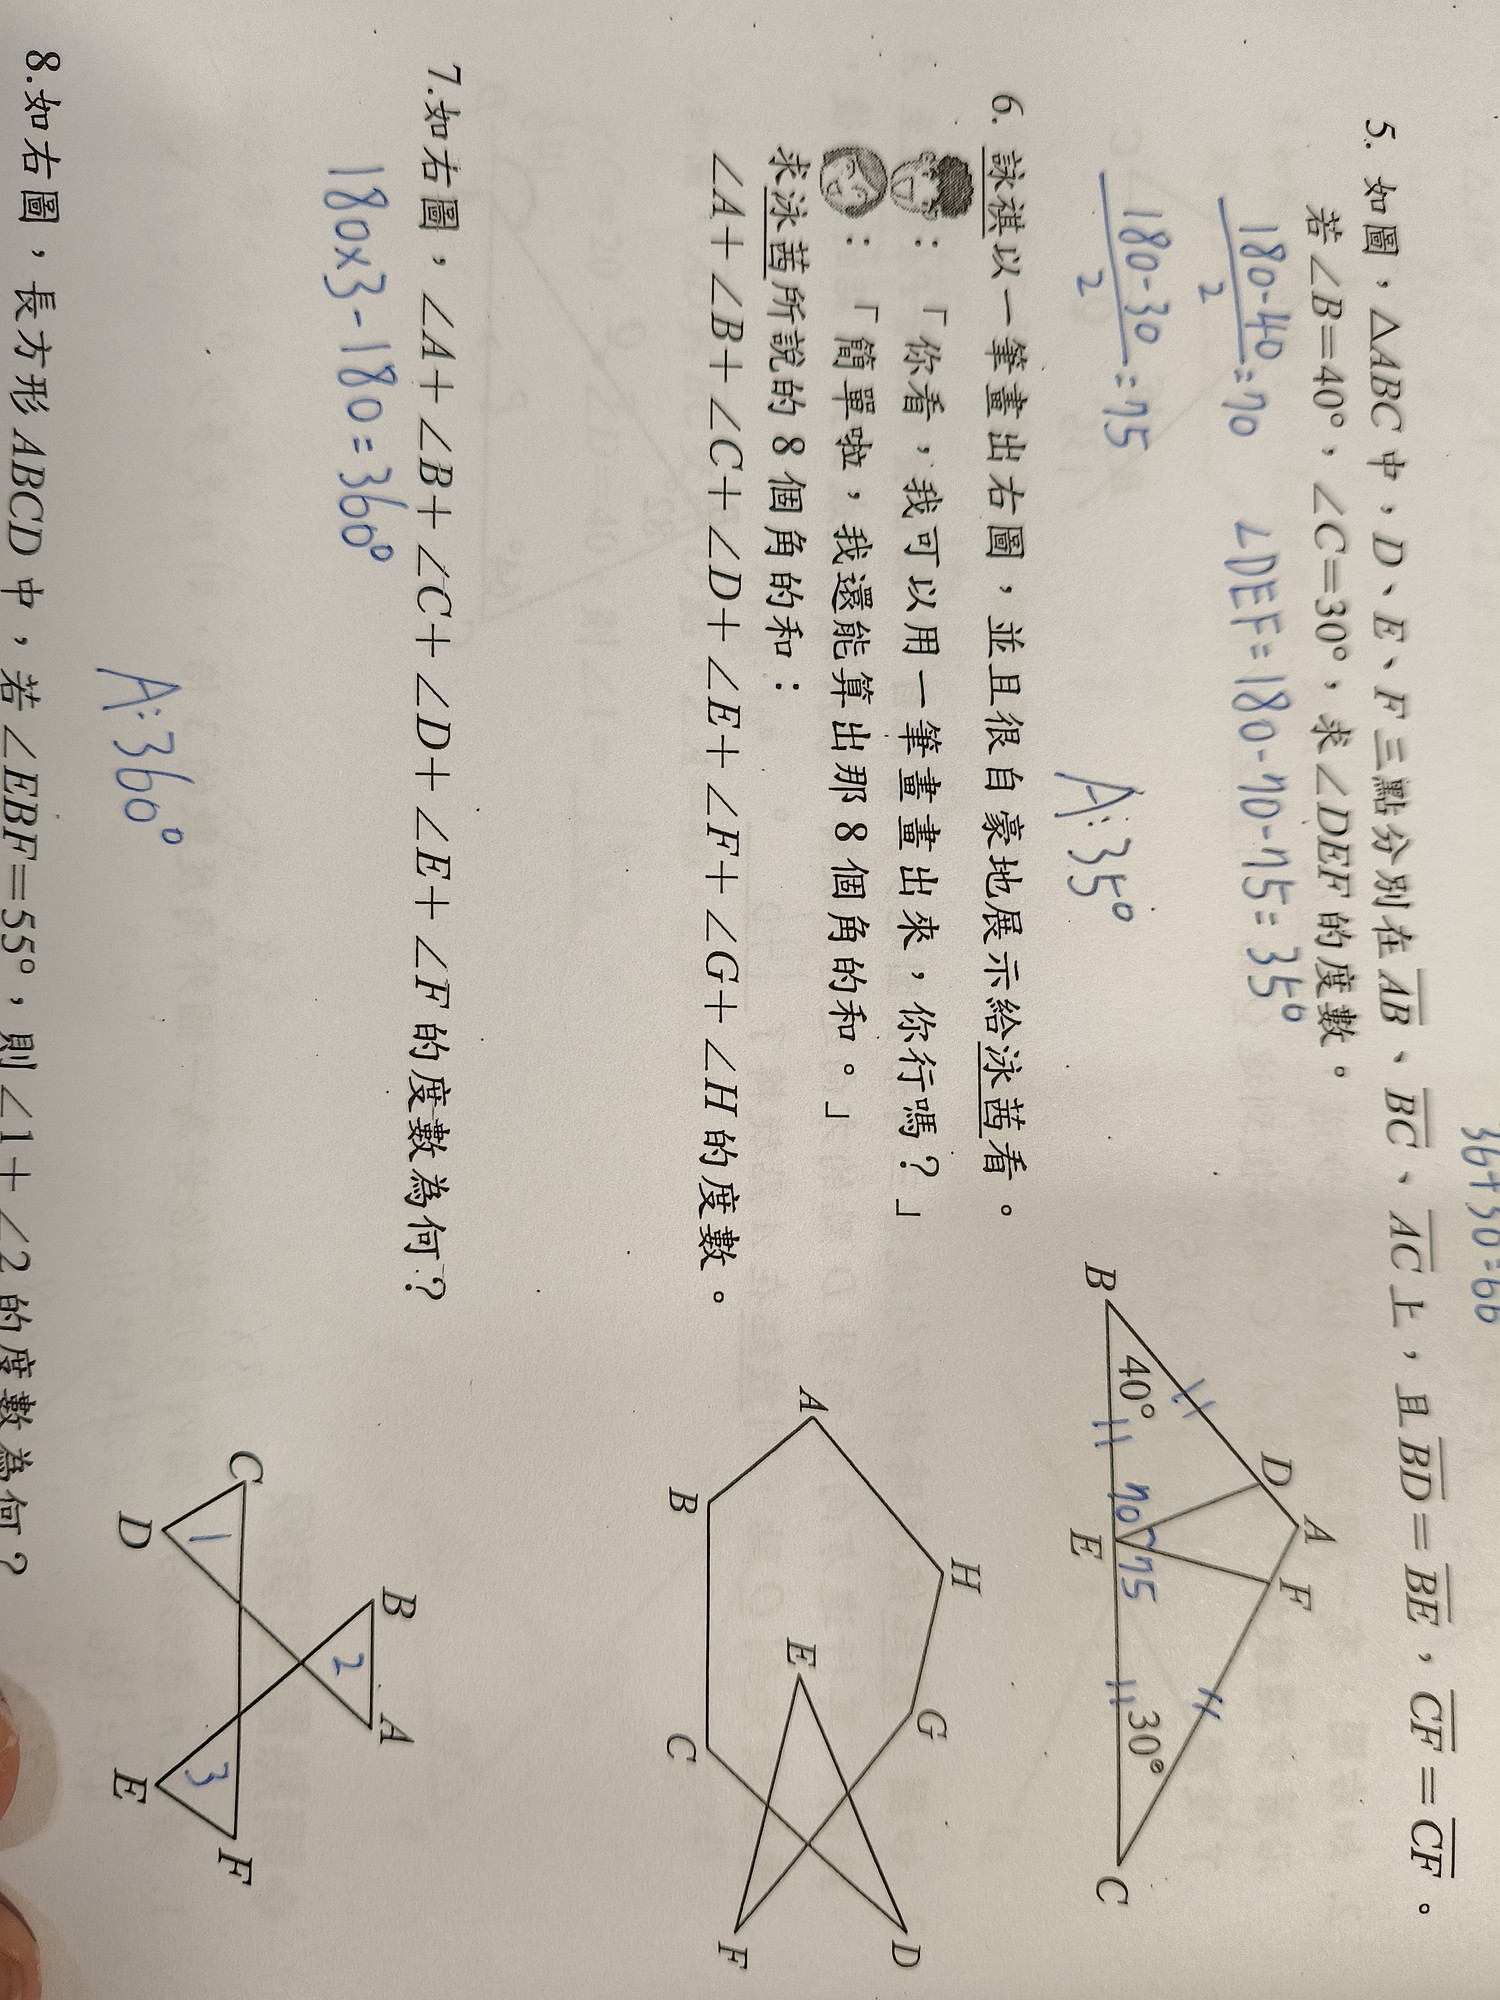 36+30=66
5. 如圖，△ABC中，D、E、F三點分別在AB、BC、AC上，且BD=BE，CF=CF。
若∠B=40°，∠C=30°，求∠DEF的度數。
180-40/2=70
∠DEF=180-70-75=35°
180-30/2=75
A:35°
B
40°
D
A
F
70
75
E
30°
C
6. 詠祺以一筆畫出右圖，並且很自豪地展示給泳茜看。
：「你看，我可以用一筆畫畫出來，你行嗎？」
：「簡單啦，我還能算出那8個角的和。」
求泳茜所說的8個角的和：
∠A+∠B+∠C+∠D+∠E+∠F+∠G+∠H的度數。
A
H
B
E
G
C
D
F
7.如右圖，∠A+∠B+∠C+∠D+∠E+∠F的度數為何？
180×3-180=360°
A:360°
C
B
1
2
D
A
3
E
F
8.如右圖，長方形ABCD中，若∠EBF=55°，則∠1+∠2的度數為何？